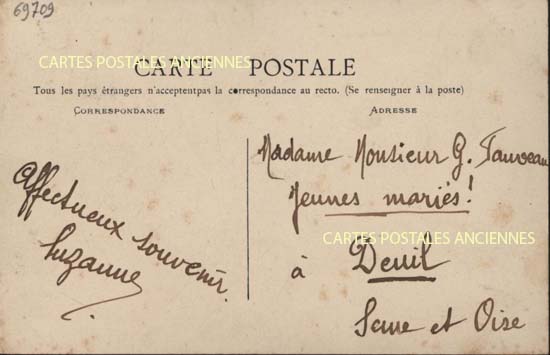 69709
CARTES POSTALES ANCIENNES
CARTE POSTALE
Tous les pays étrangers n'acceptentpas la correspondance au recto. (Se renseigner à la poste)
CORRESPONDANCE
ADRESSE
Affectueux souvenir.
Suzanne
Madame Monsieur G.
Jeunes mariés!
CARTES POSTALES ANCIENNES
à Deuil
Seine et Oise